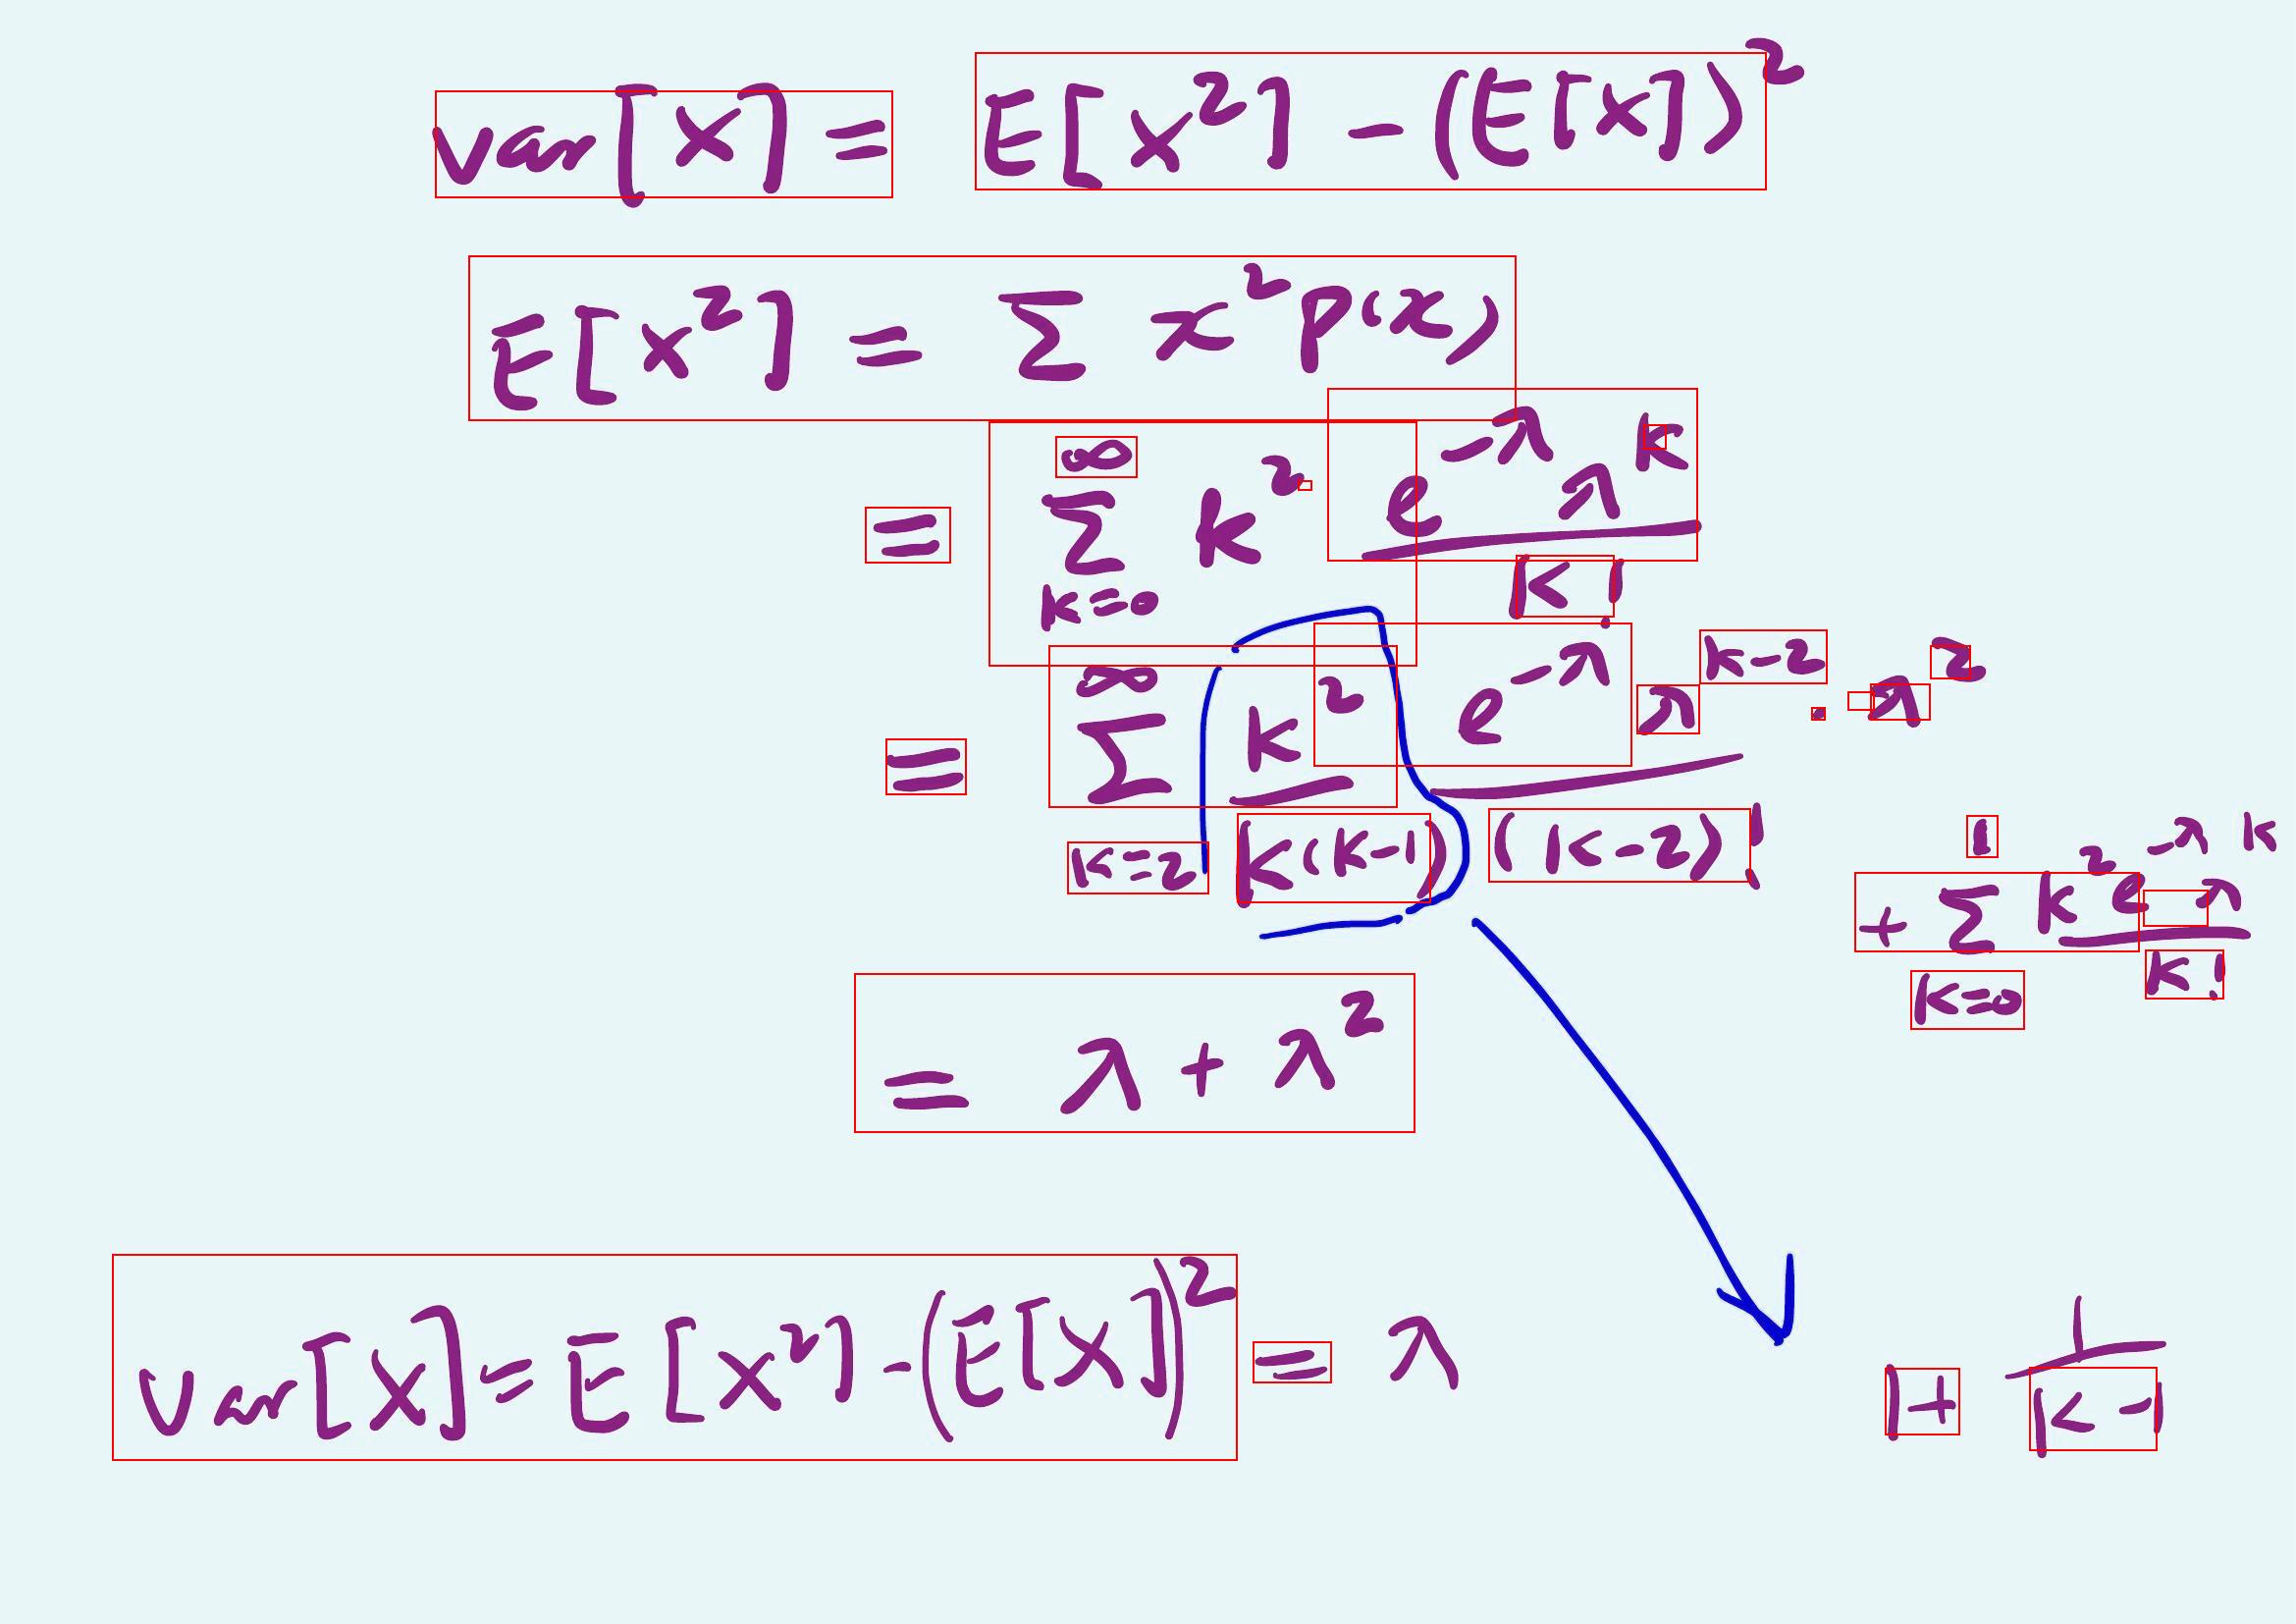 var[X] = E[X²] - (E[X])²
E[X²] = Σ x² p(x)
= Σ_{k=0}^{∞} k² · \frac{e^{-λ} λ^k}{k!}
= Σ_{k=2}^{∞} \frac{k²}{k(k-1)} \frac{e^{-λ} λ^{k-2} · λ²}{(k-2)!} + Σ_{k=0}^{1} \frac{k² e^{-λ} λ^k}{k!}
= λ + λ²
1 + \frac{1}{k-1}
Var[X] = E[X²] - (E[X])² = λ